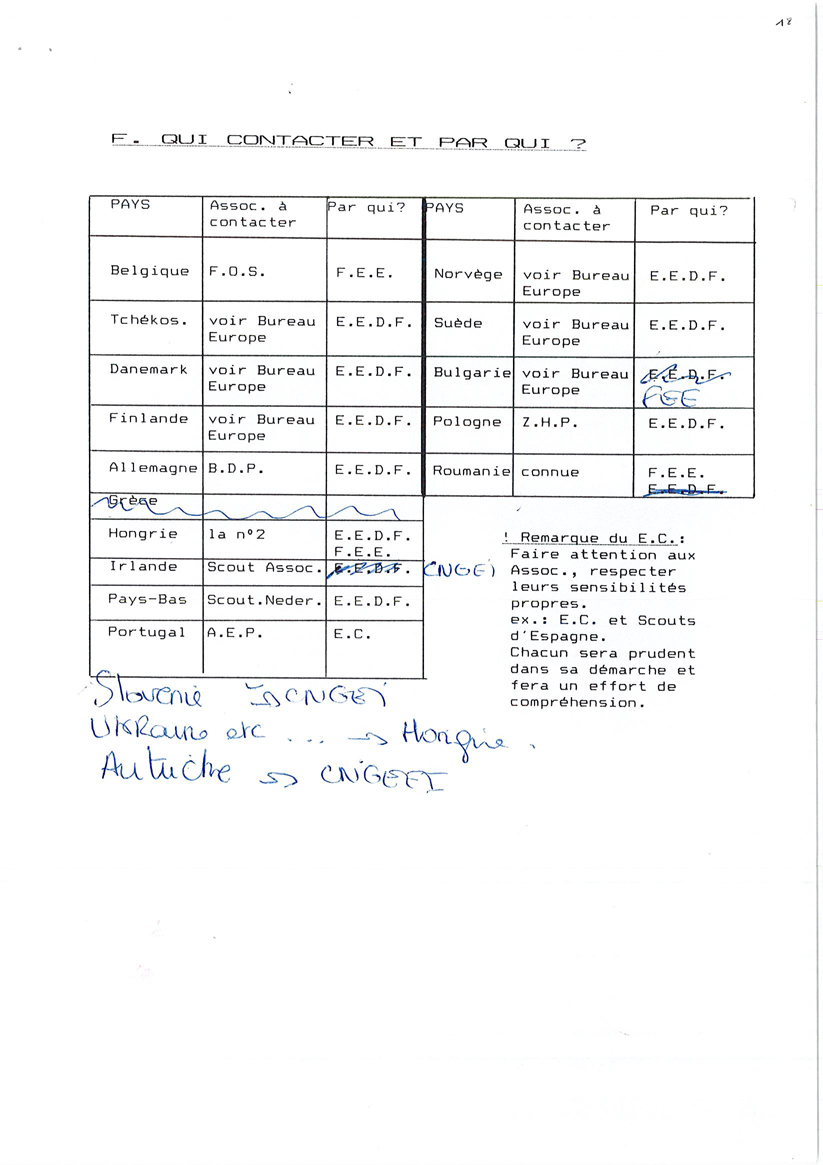 18
F. QUI CONTACTER ET PAR QUI ?
PAYS | Assoc. à contacter | Par qui? | PAYS | Assoc. à contacter | Par qui?
Belgique | F.O.S. | F.E.E. | Norvège | voir Bureau Europe | E.E.D.F.
Tchékos. | voir Bureau Europe | E.E.D.F. | Suède | voir Bureau Europe | E.E.D.F.
Danemark | voir Bureau Europe | E.E.D.F. | Bulgarie | voir Bureau Europe | E.E.D.F. FEE
Finlande | voir Bureau Europe | E.E.D.F. | Pologne | Z.H.P. | E.E.D.F.
Allemagne | B.D.P. | E.E.D.F. | Roumanie | connue | F.E.E. E.E.D.F.
Grèce
Hongrie | la n°2 | E.E.D.F. F.E.E.
Irlande | Scout Assoc. | E.E.D.F. CNGEI
Pays-Bas | Scout.Neder. | E.E.D.F.
Portugal | A.E.P. | E.C.
! Remarque du E.C.:
Faire attention aux
Assoc., respecter
leurs sensibilités
propres.
ex.: E.C. et Scouts
d'Espagne.
Chacun sera prudent
dans sa démarche et
fera un effort de
compréhension.
Slovenie → CNGEI
UKRaine etc ... → Hongrie.
Autriche → CNGEI